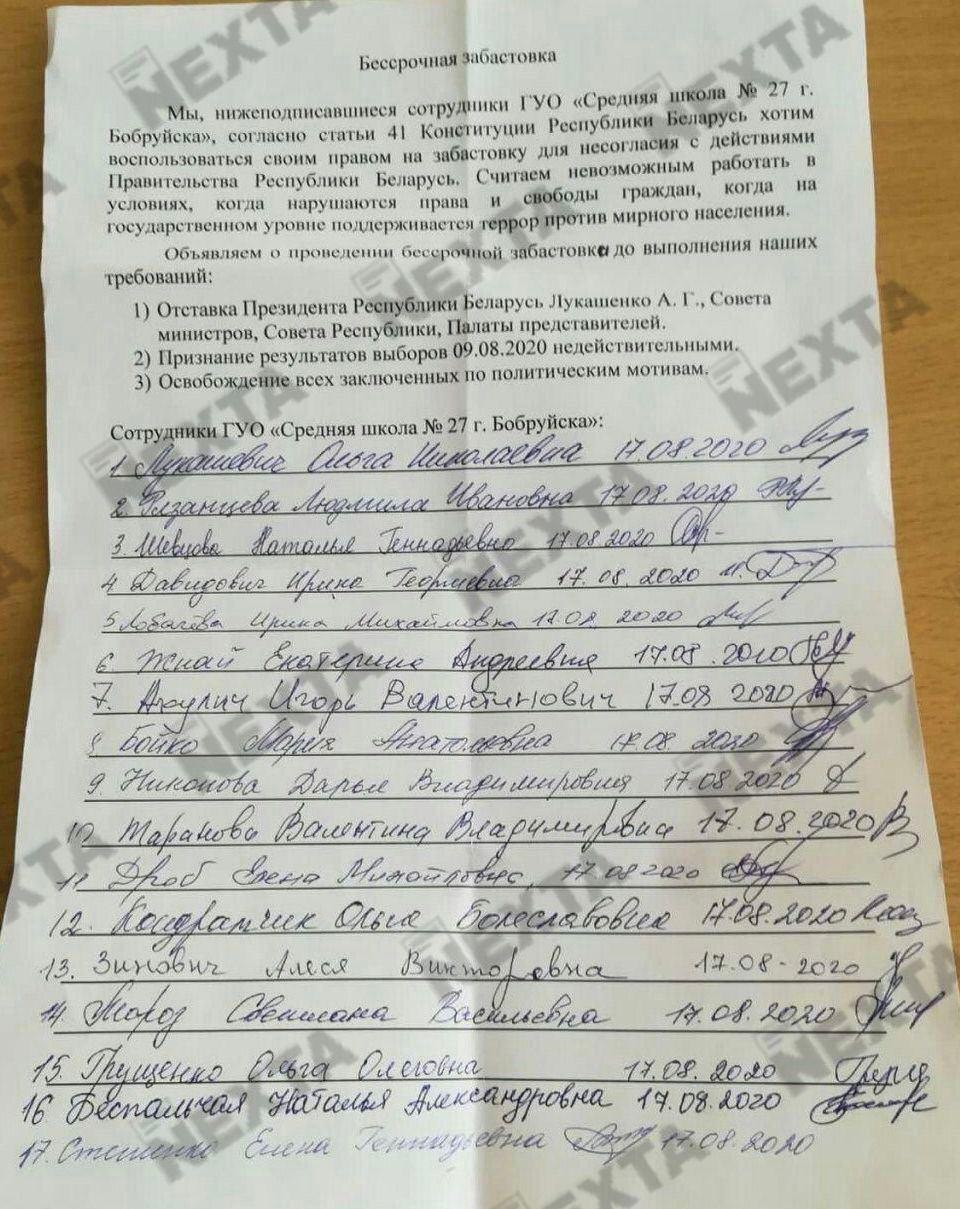 Бессрочная забастовка
Мы, нижеподписавшиеся сотрудники ГУО «Средняя школа № 27 г.
Бобруйска», согласно статьи 41 Конституции Республики Беларусь хотим
воспользоваться своим правом на забастовку для несогласия с действиями
Правительства Республики Беларусь. Считаем невозможным работать в
условиях, когда нарушаются права и свободы граждан, когда на
государственном уровне поддерживается террор против мирного населения.
Объявляем о проведении бессрочной забастовки до выполнения наших
требований:
1) Отставка Президента Республики Беларусь Лукашенко А. Г., Совета
министров, Совета Республики, Палаты представителей.
2) Признание результатов выборов 09.08.2020 недействительными.
3) Освобождение всех заключенных по политическим мотивам.
Сотрудники ГУО «Средняя школа № 27 г. Бобруйска»:
1. Лукашевич Ольга Николаевна 17.08.2020
2. Рязанцева Людмила Ивановна 17.08.2020
3. Шевцова Наталья Геннадьевна 17.08.2020
4. Давидович Ирина Георгиевна 17.08.2020
5. Лобачёва Ирина Михайловна 17.08.2020
6. Екатерина Андреевна 17.08.2020
7. Акулич Игорь Валентинович 17.08.2020
8. Бойко Мария Анатольевна 17.08.2020
9. Никонова Дарья Владимировна 17.08.2020
10. Таранова Валентина Владимировна 17.08.2020
11. Дроб Елена Михайловна, 17.08.2020
12. Кондратчик Ольга Болеславовна 17.08.2020
13. Зинович Алеся Викторовна 17.08-2020
14. Мороз Светлана Васильевна 17.08.2020
15. Грущенко Ольга Олеговна 17.08.2020
16 Беспальчая Наталья Александровна 17.08.2020
17. Елена Геннадьевна 17.08.2020
NEXTA
NEXTA
NEXTA
NEXTA
NEXTA
NEXTA
NEXTA
NEXTA
NEXTA
NEXTA
NEXTA